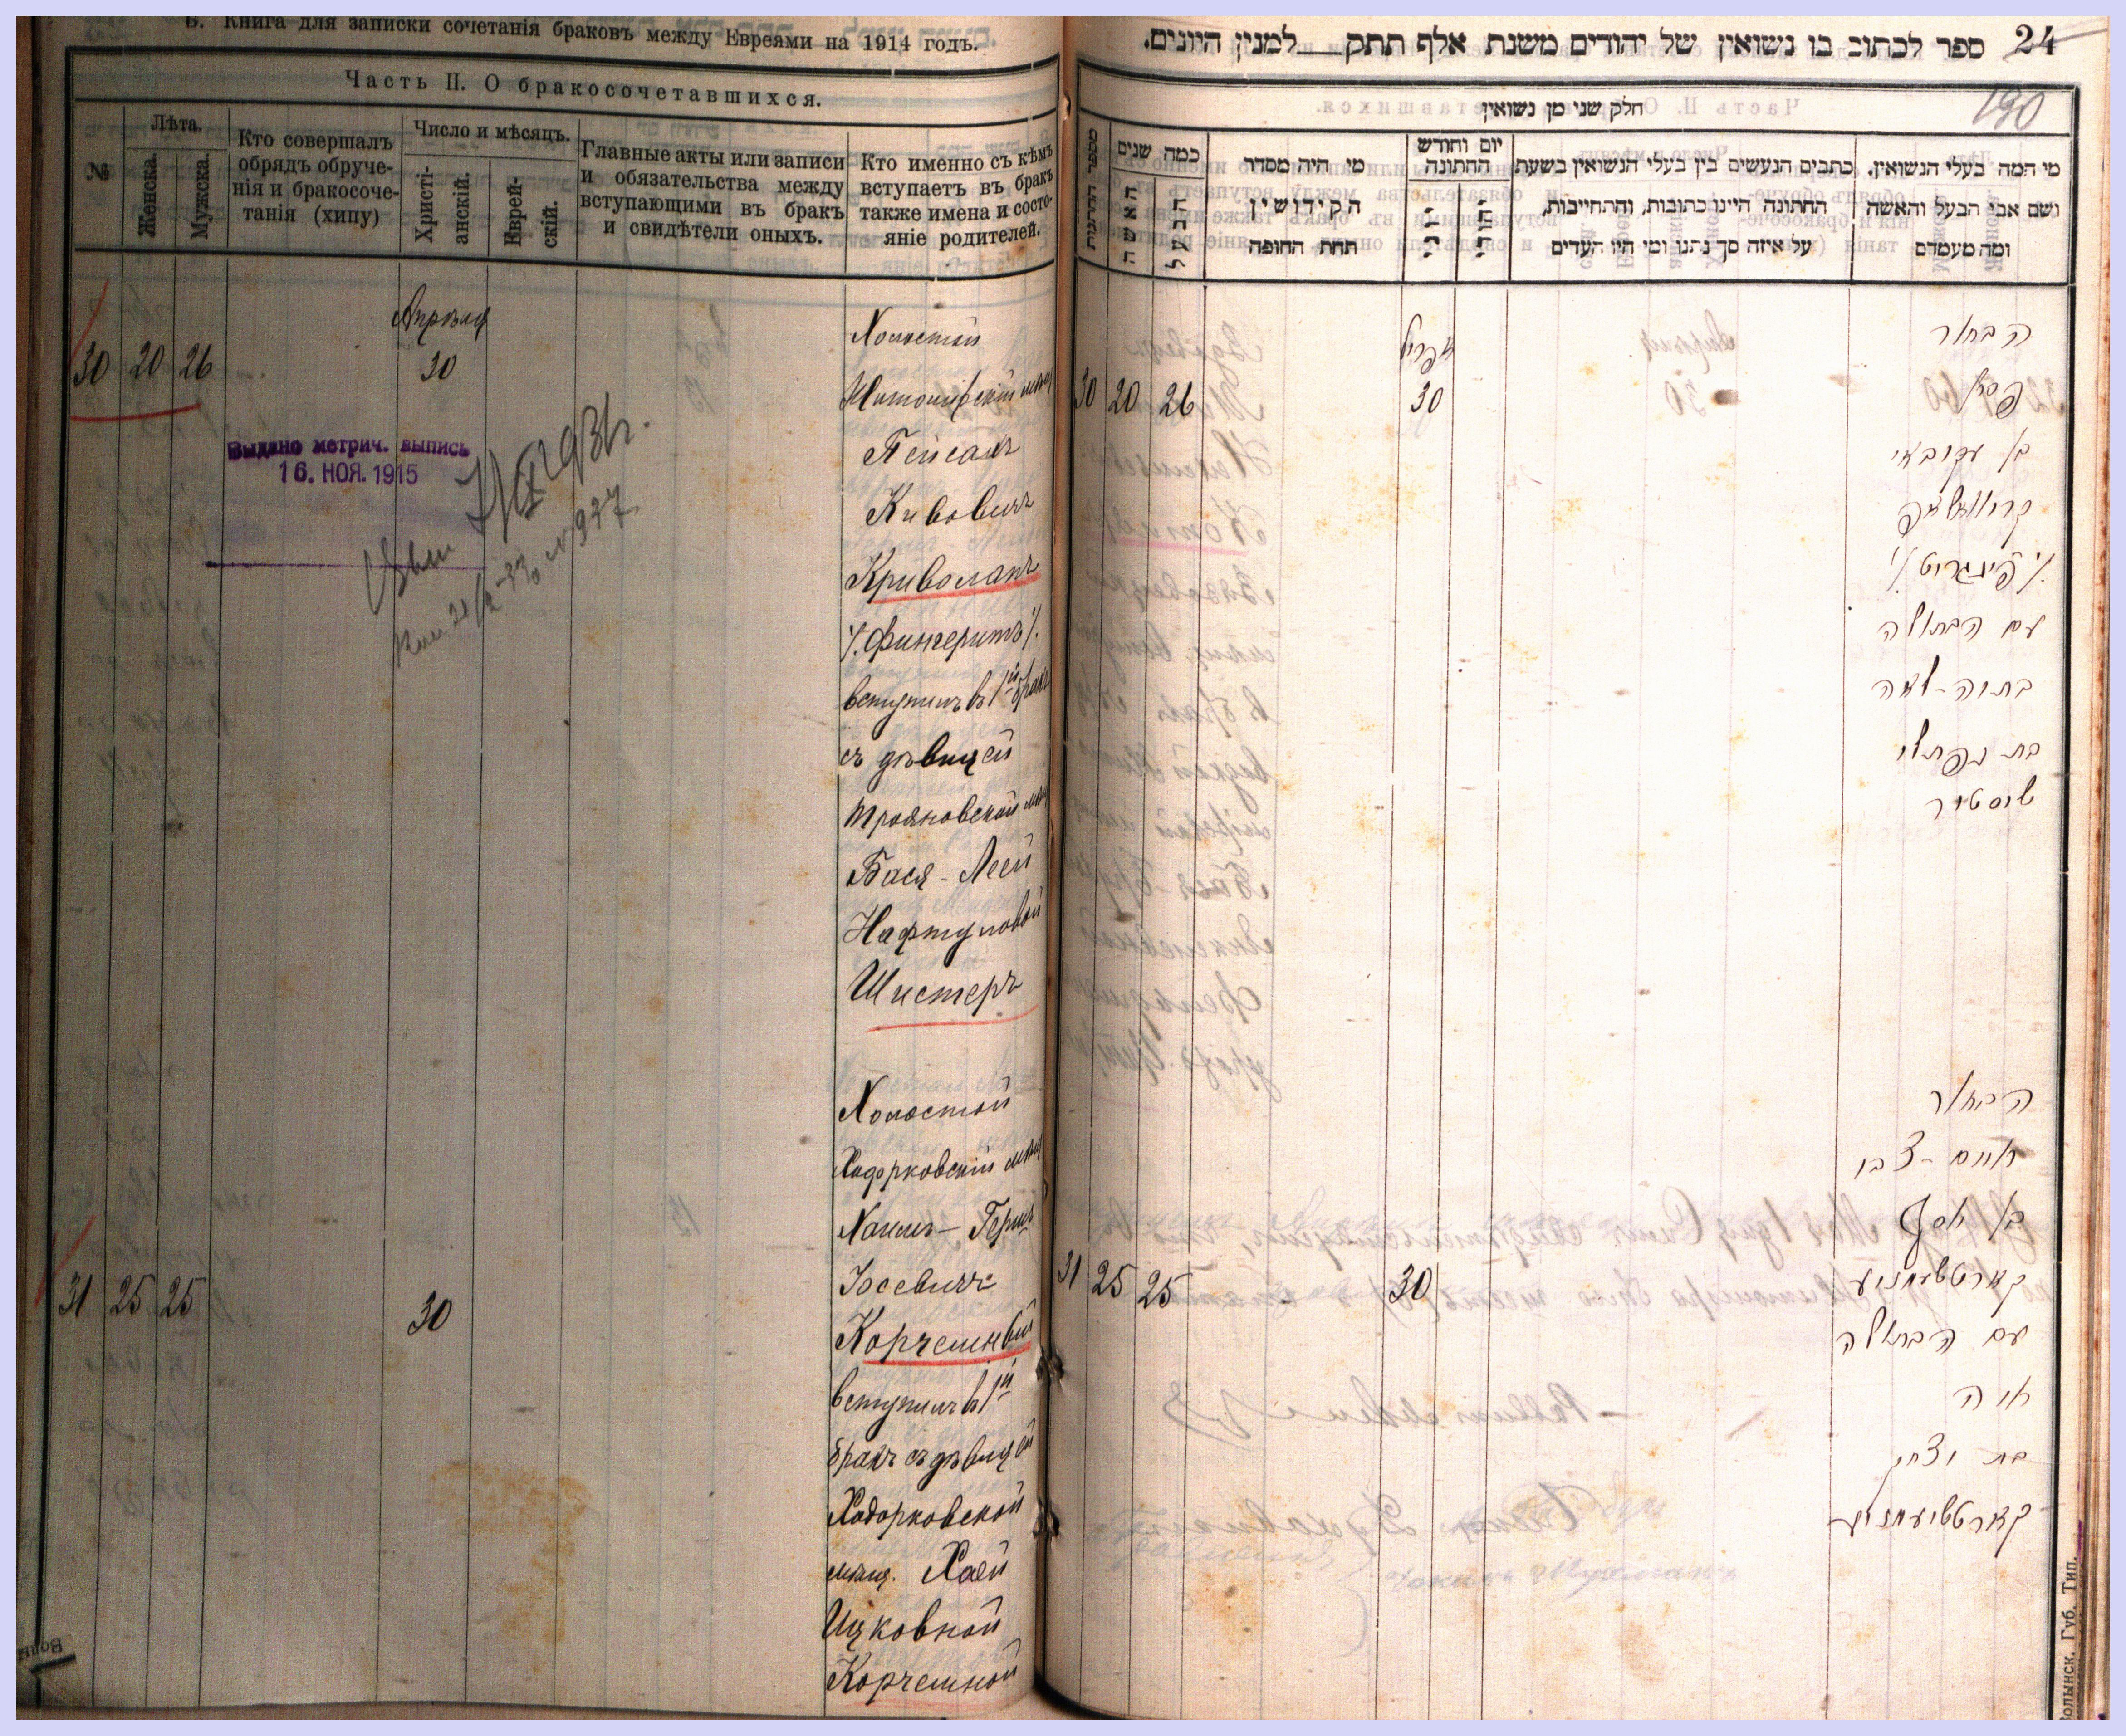 В. Книга для записки сочетанія браковъ между Евреями на 1914 годъ.
Часть II. О бракосочетавшихся.
№
Лѣта.
Женска.
Мужска.
Кто совершалъ
обрядъ обруче-
нія и бракосоче-
танія (хипу)
Число и мѣсяцъ.
Христі-
анскій.
Еврей-
скій.
Главные акты или записи
и обязательства между
вступающими въ бракъ
и свидѣтели оныхъ.
Кто именно съ кѣмъ
вступаетъ въ бракъ
также имена и состо-
яніе родителей.
Апрѣля
30 20 26 30
Выдано метрич. выпись
16. НОЯ. 1915
Холостой
Житомірскій мѣщ
Пейсахъ
Кивовичъ
Криволапъ
/. Фингеритъ /.
вступилъ въ 1й бракъ
съ дѣвицей
Трояновской мѣщ
Бася - Леей
Нафтуловой
Шистеръ
31 25 25 30
Холостой
Ходорковскій мѣщ
Хаимъ - Гершъ
Іосевичъ
Корчемный
вступилъ въ 1й
бракъ съ дѣвицей
Ходорковской
мѣщ. Хаей
Ицковной
Корчемной
24
ספר לכתוב בו נשואין של יהודים משנת אלף תתק למנין היונים.
190
חלק שני מן נשואין
מספר החתונות
כמה שנים
האשה
הבעל
מי היה מסדר
הקידושין
תחת החופה
יום וחודש
החתונה
נוצרי
יהודי
כתבים הנעשים בין בעלי הנשואין בשעת
החתונה היינו כתובות, והתחייבות,
על איזה סך נתנו ומי היו העדים
מי המה בעלי הנשואין,
ושם אבי הבעל והאשה
ומה מעמדם
אפריל
30 20 26 30
הבחור
פסח
בן עקיבא
קריוואלאפ
/. פינגריט /.
עם הבתולה
בתיה-לאה
בת נפתלי
שיסטיר
31 25 25 30
הבחור
חיים-צבי
בן יוסף
קארטשעמניע
עם הבתולה
חיה
בת יצחק
קארטשיעמניע
Волынск. Губ. Тип.